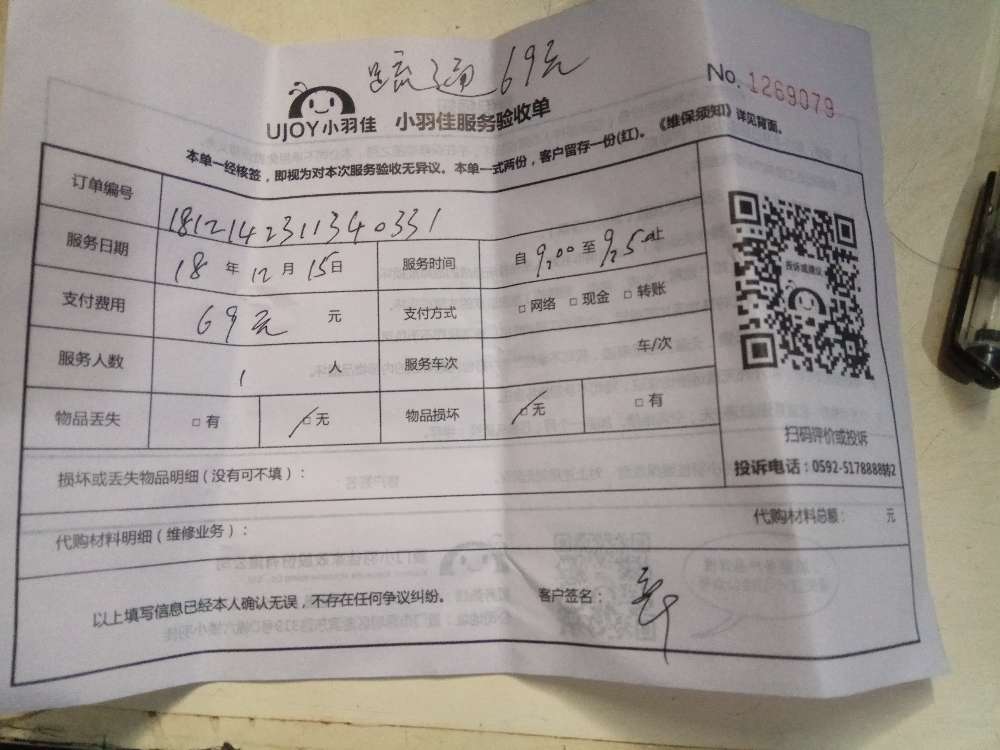 疏通69元
No. 1269079
UJOY小羽佳 小羽佳服务验收单
本单一经核签，即视为对本次服务验收无异议。本单一式两份，客户留存一份(红)。《维保须知》详见背面。
订单编号 181214231134 0331
服务日期 18 年 12 月 15日 服务时间 自 9:00 至 止
支付费用 69元 元 支付方式 □ 网络 □ 现金 □ 转账
服务人数 1 人 服务车次 车/次
物品丢失 □ 有 □ 无 物品损坏 □ 无 □ 有
投诉或建议
扫码评价或投诉
投诉电话：0592-5178888转2
损坏或丢失物品明细（没有可不填）：
代购材料明细（维修业务）：
代购材料总额： 元
以上填写信息已经本人确认无误，不存在任何争议纠纷。 客户签名：